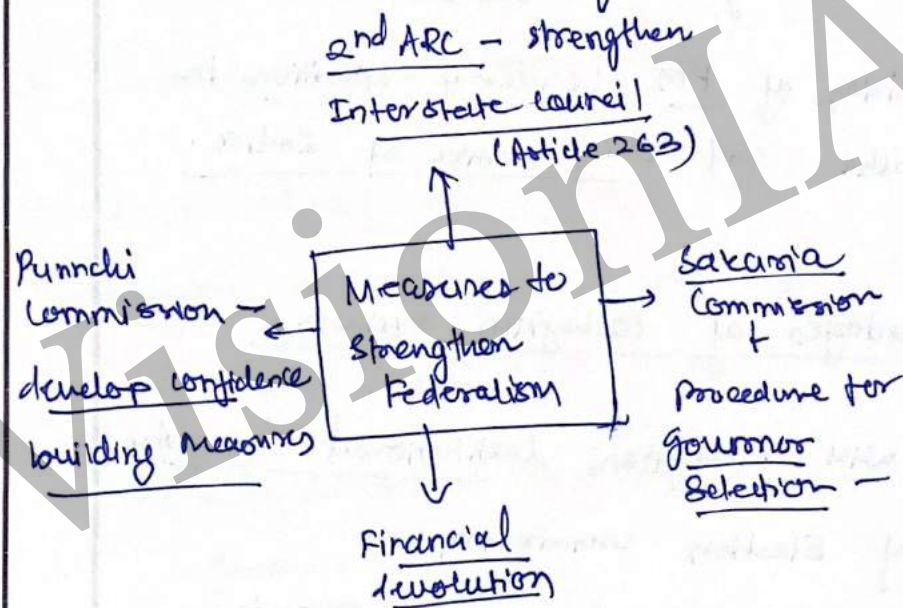 2nd ARC - strengthen
Interstate council
(Article 263)
Punnchi
Commission -
develop confidence
building measures
Measures to
Strengthen
Federalism
Sakaria
Commission
+
procedure for
governor
Selection -
Financial
devolution
VisionIA